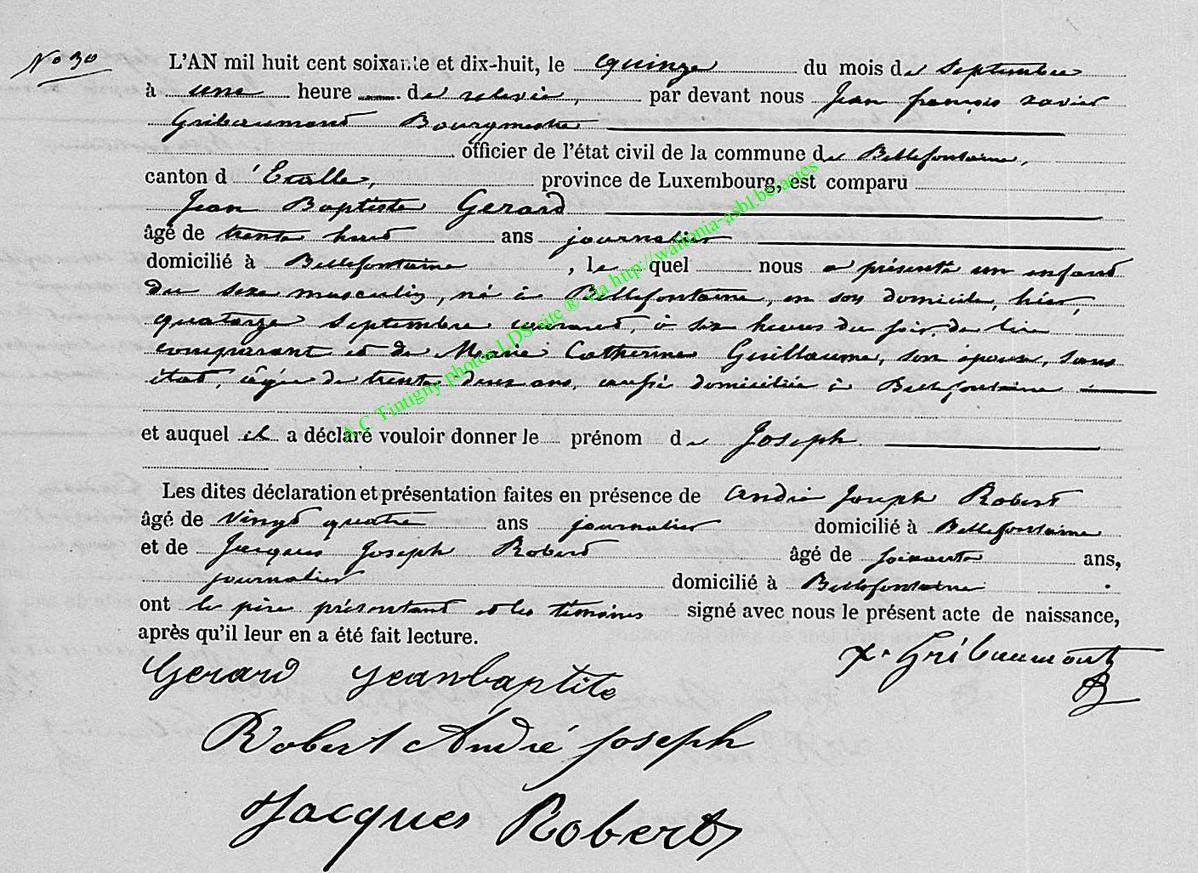 N° 30
L'AN mil huit cent soixante et dix-huit, le quinze du mois de septembre
à une heure de relevée, par devant nous Jean françois xavier
Gribaumont Bourgmestre
officier de l'état civil de la commune de Bellefontaine,
canton d'Etalle, province de Luxembourg, est comparu
Jean Baptiste Gerard
âgé de trente huit ans journalier
domicilié à Bellefontaine, lequel nous a présenté un enfant
du sexe masculin, né à Bellefontaine, en son domicile, hier,
quatorze septembre courant, à six heures du soir, de lui
comparant et de Marie Catherine Guillaume, son épouse, sans
état, âgée de trente deux ans, aussi domiciliée à Bellefontaine
et auquel il a déclaré vouloir donner le prénom de Joseph
Les dites déclaration et présentation faites en présence de André Joseph Robert
âgé de vingt quatre ans journalier domicilié à Bellefontaine
et de Jacques Joseph Robert âgé de soixante ans,
journalier domicilié à Bellefontaine.
ont le père présentant et les témoins signé avec nous le présent acte de naissance,
après qu'il leur en a été fait lecture.
x. Gribaumont
Gerard Jeanbaptite
Robert André Joseph
Jacques Robert
A.C Tintigny photos LDS site ® via http://wallonia-asbl.be/actes